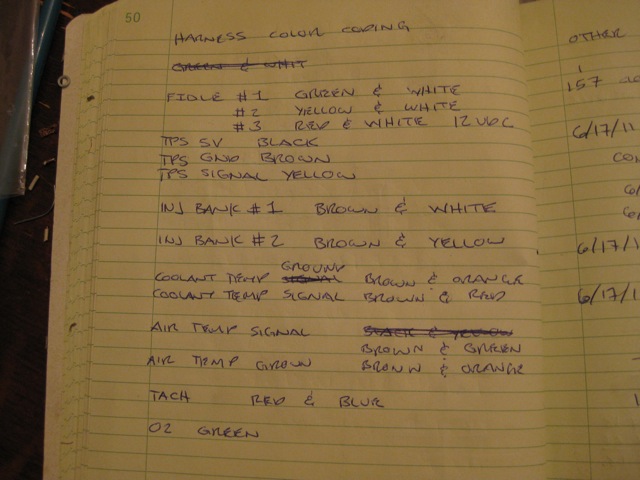 50
HARNESS COLOR CODING
GREEN & WHIT
FIDLE #1 GREEN & WHITE
#2 YELLOW & WHITE
#3 RED & WHITE 12 VDC
TPS 5V BLACK
TPS GND BROWN
TPS SIGNAL YELLOW
INJ BANK #1 BROWN & WHITE
INJ BANK #2 BROWN & YELLOW
GROUND
COOLANT TEMP SIGNAL BROWN & ORANGE
COOLANT TEMP SIGNAL BROWN & RED
AIR TEMP SIGNAL BLACK & YELLOW
BROWN & GREEN
AIR TEMP GROUN BROWN & ORANGE
TACH RED & BLUE
O2 GREEN
OTHER
1
157
6/17/11
CON
6/
6/
6/17/1
6/17/1